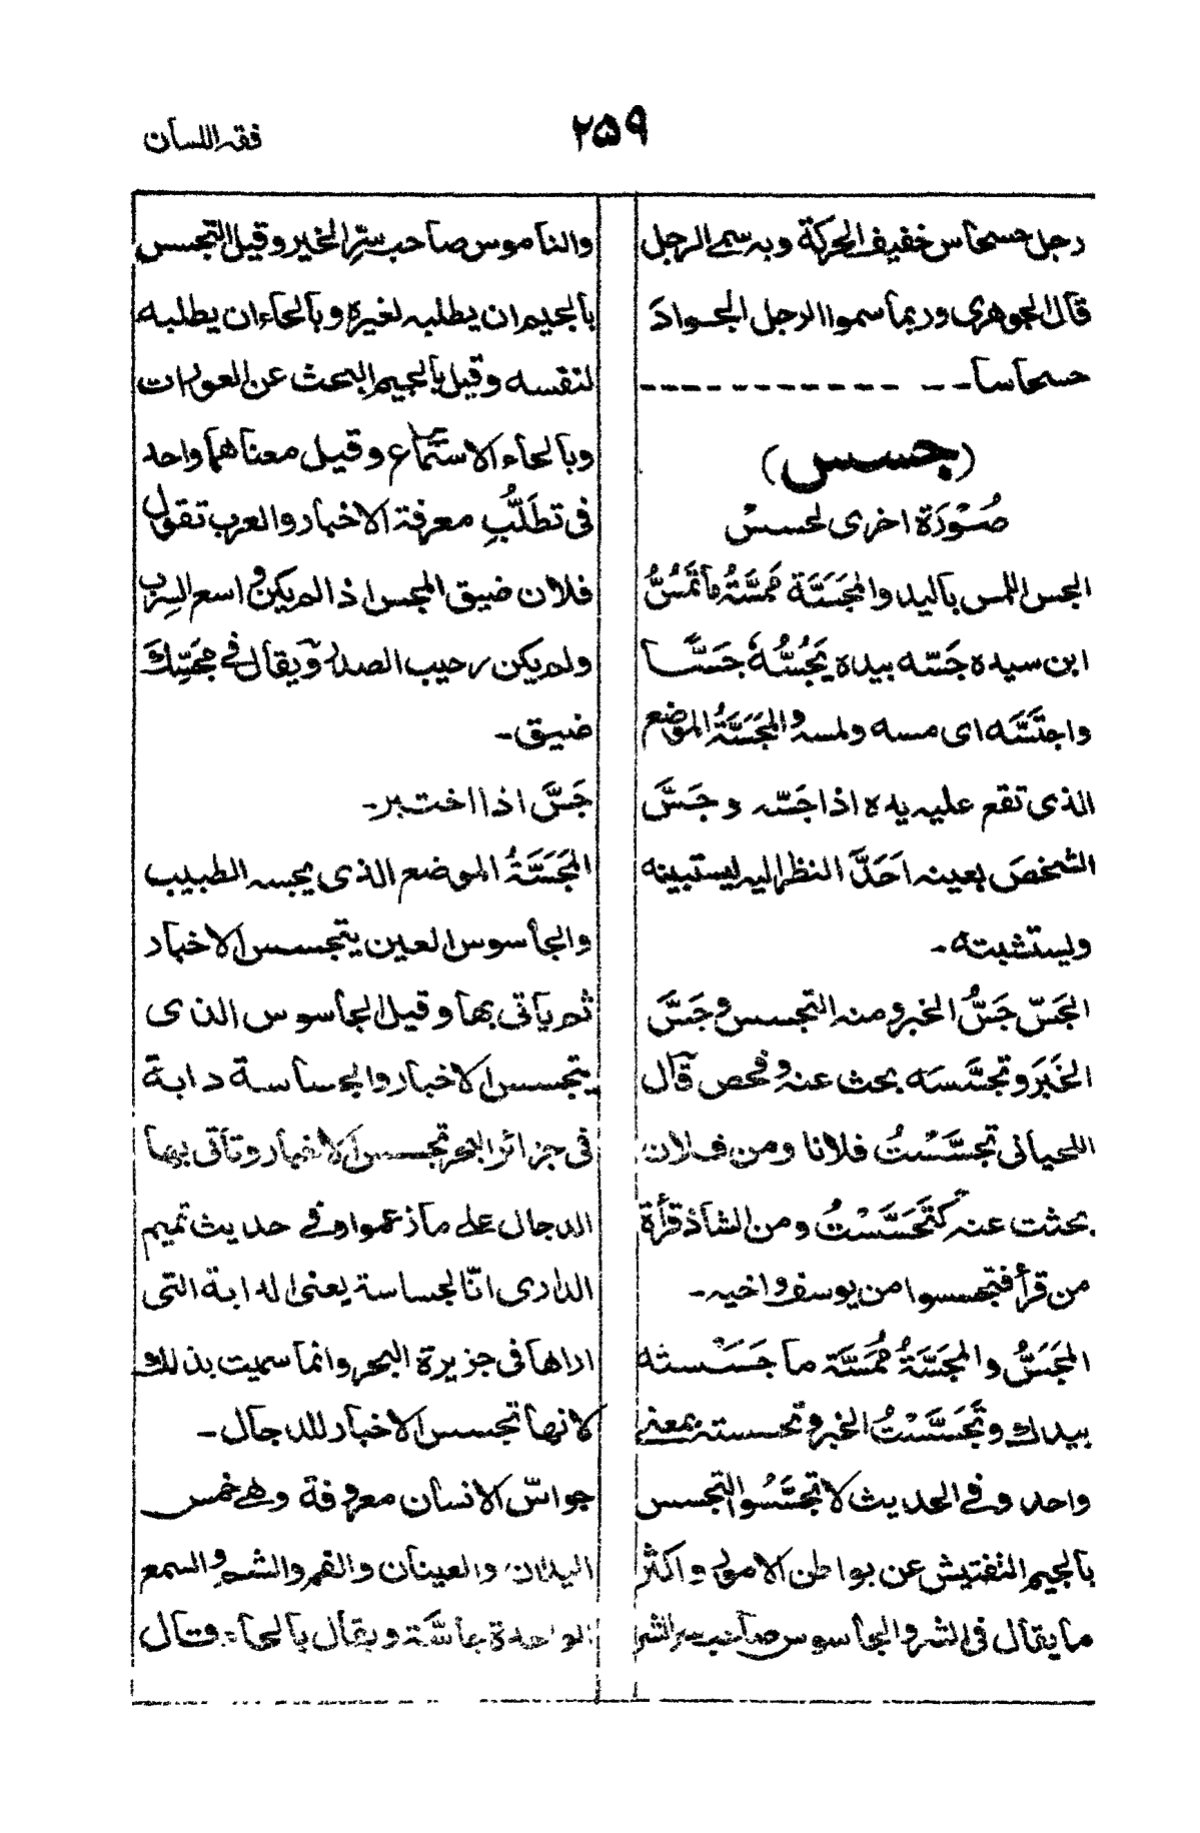 فقہ اللسان
۲۵۹
رجل حسحاس خفيف الحركة وبه سمى الرجل
قال الجوهرى وربما سموا الرجل الجواد
حسحاسا - - - - - - - - - - - -
(جسس)
صُوْرَة اخرى لحسسْ
الجس اللمس باليد والمَجَسَّة مَمَسَّةُ ما تَمَسُّ
ابن سيده جَسّه بيده يَجُسُّهُ جَسًّا
واجتَسَّه اى مسه ولمسه والمَجَسَّةُ الموضع
الذى تقع عليه يده اذا جَسّه وجَسَّ
الشخصَ بعينه اَحَدَّ النظر اليه ليستبينه
وليستثبته -
الجَسّ جَسُّ الخبر ومنه التجسس وجَسَّ
الخَبَرَ وتجسَّسَه بحث عنه وفحص قال
اللحيانى تجسَّسْتُ فلانا ومن فلان
بحثت عنه كتَحَسَّسْتُ ومن الشاذ قرأة
من قرأ فتجسسوا من يوسف واخيه -
المَجَسُّ والمَجَسَّةُ مُمَسَّة ما جَسَسْته
بيدك وتَجَسَّسْتُ الخبر وتحسسته بمعنى
واحد وفى الحديث لا تجسَّسُوا التجسس
بالجيم التفتيش عن بواطن الامور واكثر
ما يقال فى الشر والجاسوس صاحب سر الشر
والناموس صاحب سِرِّ الخير وقيل التجسس
بالجيم ان يطلبه لغيره وبالحاء ان يطلبه
لنفسه وقيل بالجيم البحث عن العورات
وبالحاء الاستماع وقيل معناهما واحد
فى تطَلُّبِ معرفة الاخبار والعرب تقول
فلان ضيق المجس اذا لم يكن واسع السِرب
ولم يكن رحيب الصدر ويقال فى مَجَسِّكَ
ضيق -
جَسَّ اذا اختبر -
المَجَسَّةُ الموضع الذى يجسه الطبيب
والجاسوس العين يتجسس الاخبار
ثم ياتى بها وقيل الجاسوس الذى
يتجسس الاخبار والجساسة دابة
فى جزائر البحر تجسس الاخبار وتاتى بها
الدجال على ما زعموا وفى حديث تميم
الدارى انّا لجساسة يعنى الدابة التى
اراها فى جزيرة البحر وانما سميت بذلك
لانها تجسس الاخبار للدجال -
جواسّ الانسان معروفة وهى خمس
اليدان والعينان والفم والشم والسمع
الواحدة جاسّة ويقال بالحاء قال